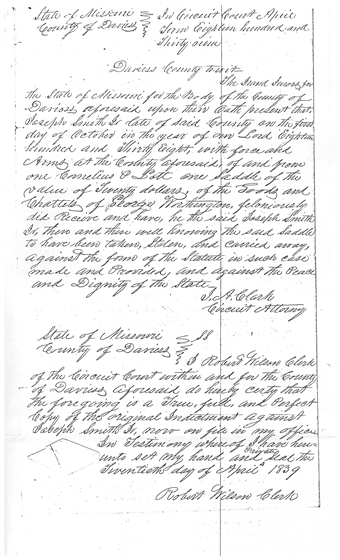 State of Missouri
County of Daviess
In Circuit Court April
Term Eighteen hundred and
Thirty nine
Daviess County to wit
The Grand Jurors for
the State of Missouri for the Body of the County of
Daviess aforesaid upon their Oath present that
Joseph Smith Jr late of said County on the first
day of October in the year of our Lord Eighteen
Hundred and Thirty Eight, with force and
Arms, at the County aforesaid, of and from
one Cornelius P Lott one Saddle of the
value of Twenty dollars, of the Goods and
Chattels of George Worthington, feloniously
did Recive and have, he the said Joseph Smith
Jr, then and there well knowing the said Saddle
to have been taken, Stolen, and carried away,
against the form of the Statute in such case
made and Provided, and against the Peace
and Dignity of the State,
J. A. Clark
Circuit Attorney
State of Missouri
County of Daviess
SS
I Robert Wilson Clerk
of the Circuit Court within and for the County
of Daviess aforesaid do hereby certify that
the foregoing is a True, full, and Perfect
Copy of the original Indictment against
Joseph Smith Jr, now on file in my office
In Testimony where of I have here
unto set my hand and private seal the
Twentieth day of April 1839
Robert Wilson Clerk